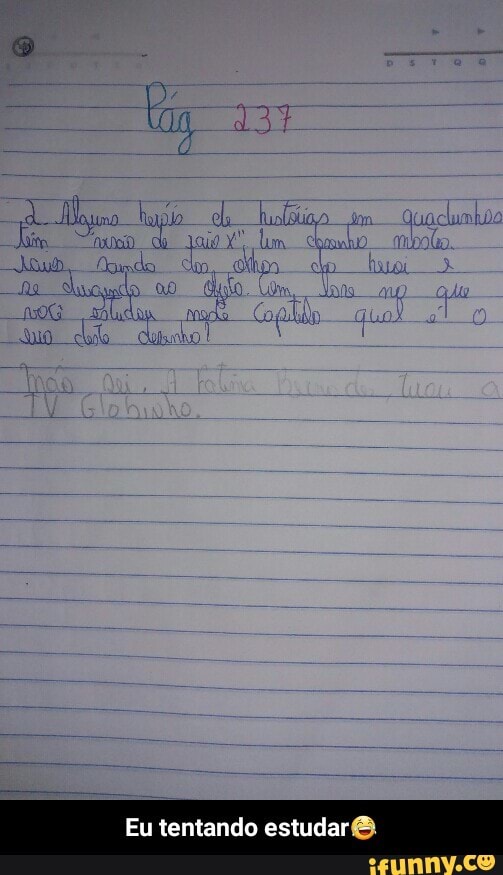 D S T Q Q
Pág 237
2. Alguns heróis de histórias em quadrinhos
têm "visão de raio X", um desenho mostra
raios saindo dos olhos do herói e
se dirigindo ao objeto. Com base no que
você estudou neste Capítulo qual é o
erro deste desenho?
não sei. A Fatima tirou a
TV Globinho.
Eu tentando estudar😂
ifunny.co